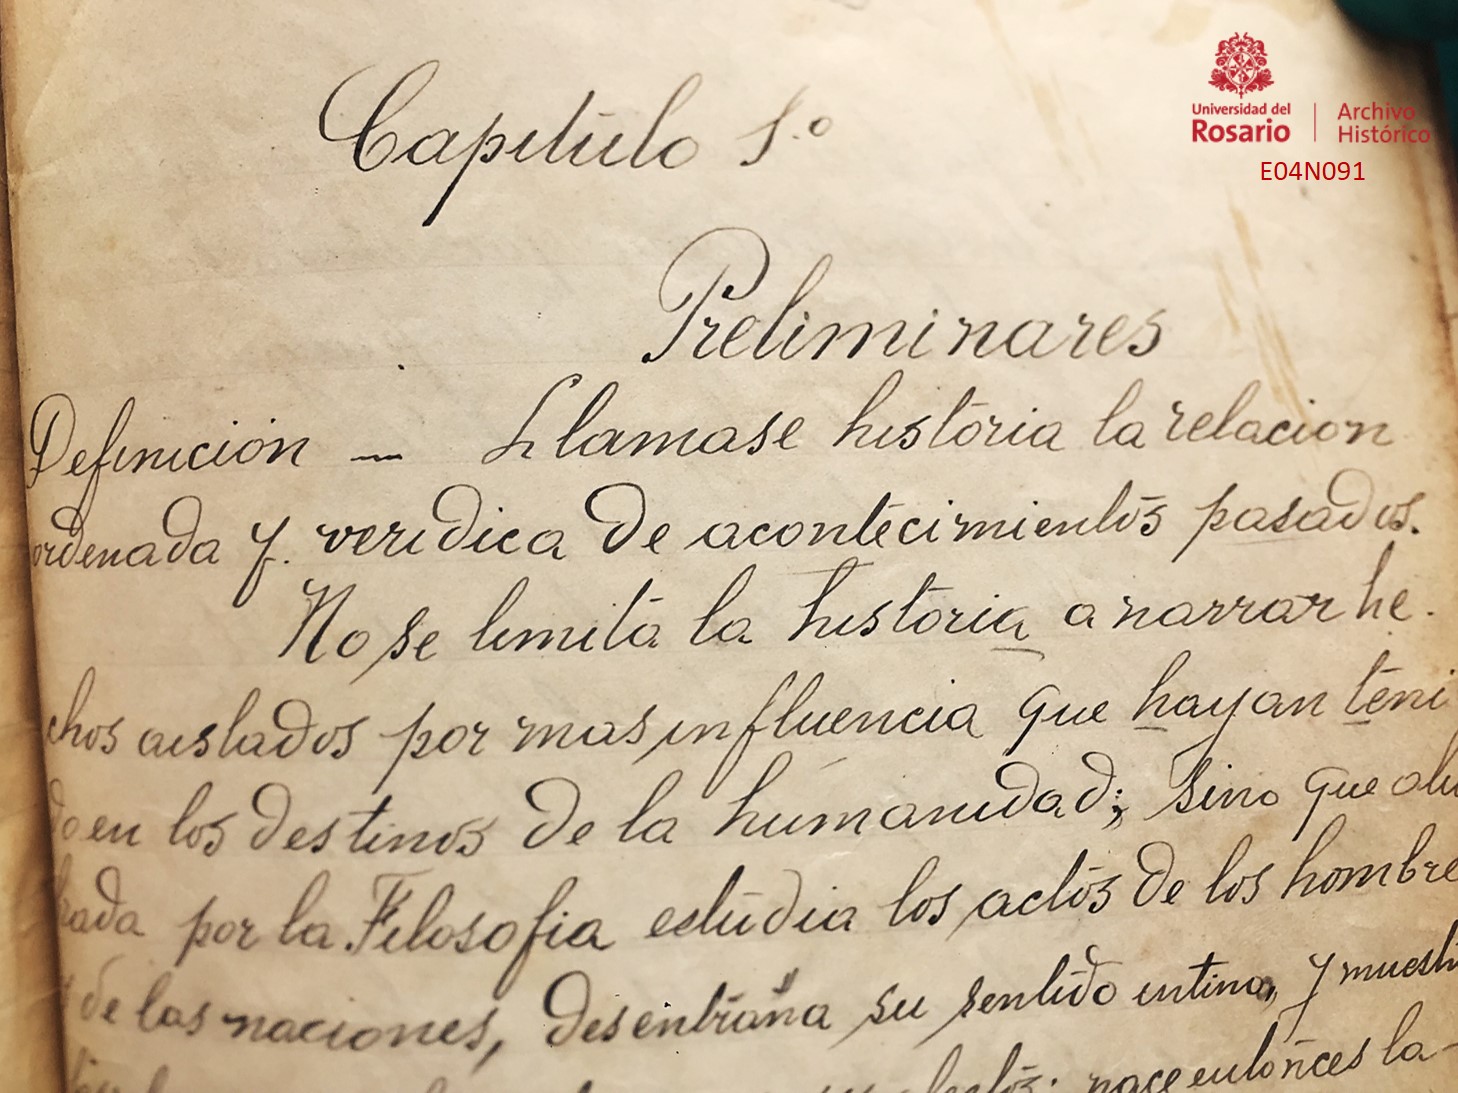 Universidad del
Rosario
Archivo
Histórico
E04N091
Capitulo 1.º
Preliminares
Definición — Llamase historia la relacion
ordenada y. veridica de acontecimientos pasados.
No se limita la historia a narrar he-
chos aislados por mas influencia que hayan teni
do en los destinos de la humanidad; sino que alu
brada por la Filosofia estudia los actos de los hombre
y de las naciones, desentraña su sentido intimo, y muest
nace entonces la-